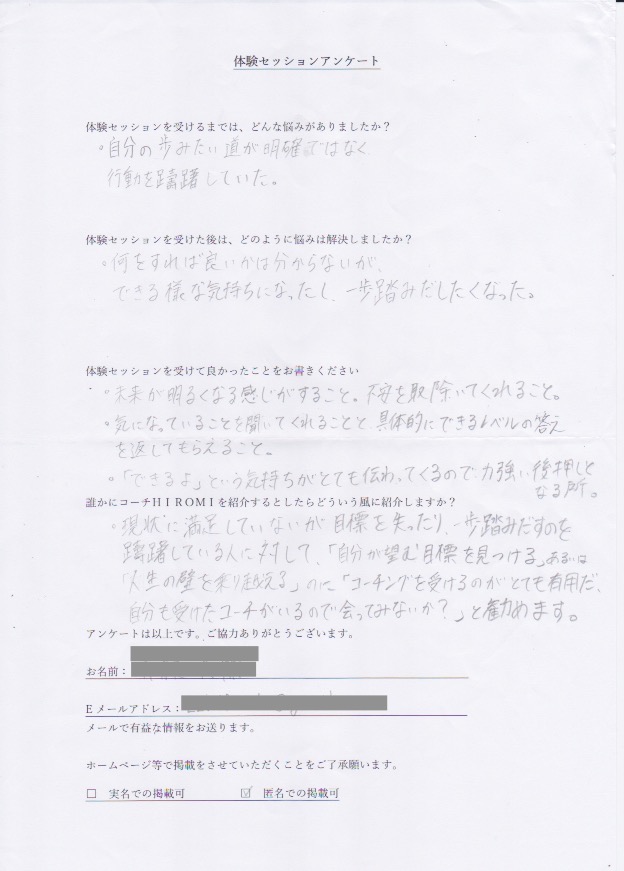 体験セッションアンケート
体験セッションを受けるまでは、どんな悩みがありましたか？
。自分の歩みたい道が明確ではなく
行動を躊躇していた。
体験セッションを受けた後は、どのように悩みは解決しましたか？
。何をすれば良いかは分からないが、
できる様な気持ちになったし、一歩踏みだしたくなった。
体験セッションを受けて良かったことをお書きください
。未来が明るくなる感じがすること。不安を取除いてくれること。
。気になっていることを聞いてくれることと、具体的にできるレベルの答え
を返してもらえること。
。「できるよ」という気持ちがとても伝わってくるので力強い後押しと
なる所。
誰かにコーチＨＩＲＯＭＩを紹介するとしたらどういう風に紹介しますか？
。現状に満足していないが目標を失ったり、一歩踏みだすのを
躊躇している人に対して、「自分が望む目標を見つける」あるいは
「人生の壁を乗り越える」のに「コーチングを受けるのがとても有用だ、
自分も受けたコーチがいるので会ってみないか？」と勧めます。
アンケートは以上です。ご協力ありがとうございます。
お名前：
Ｅメールアドレス：
メールで有益な情報をお送ります。
ホームページ等で掲載をさせていただくことをご了承願います。
☐ 実名での掲載可 ☑ 匿名での掲載可